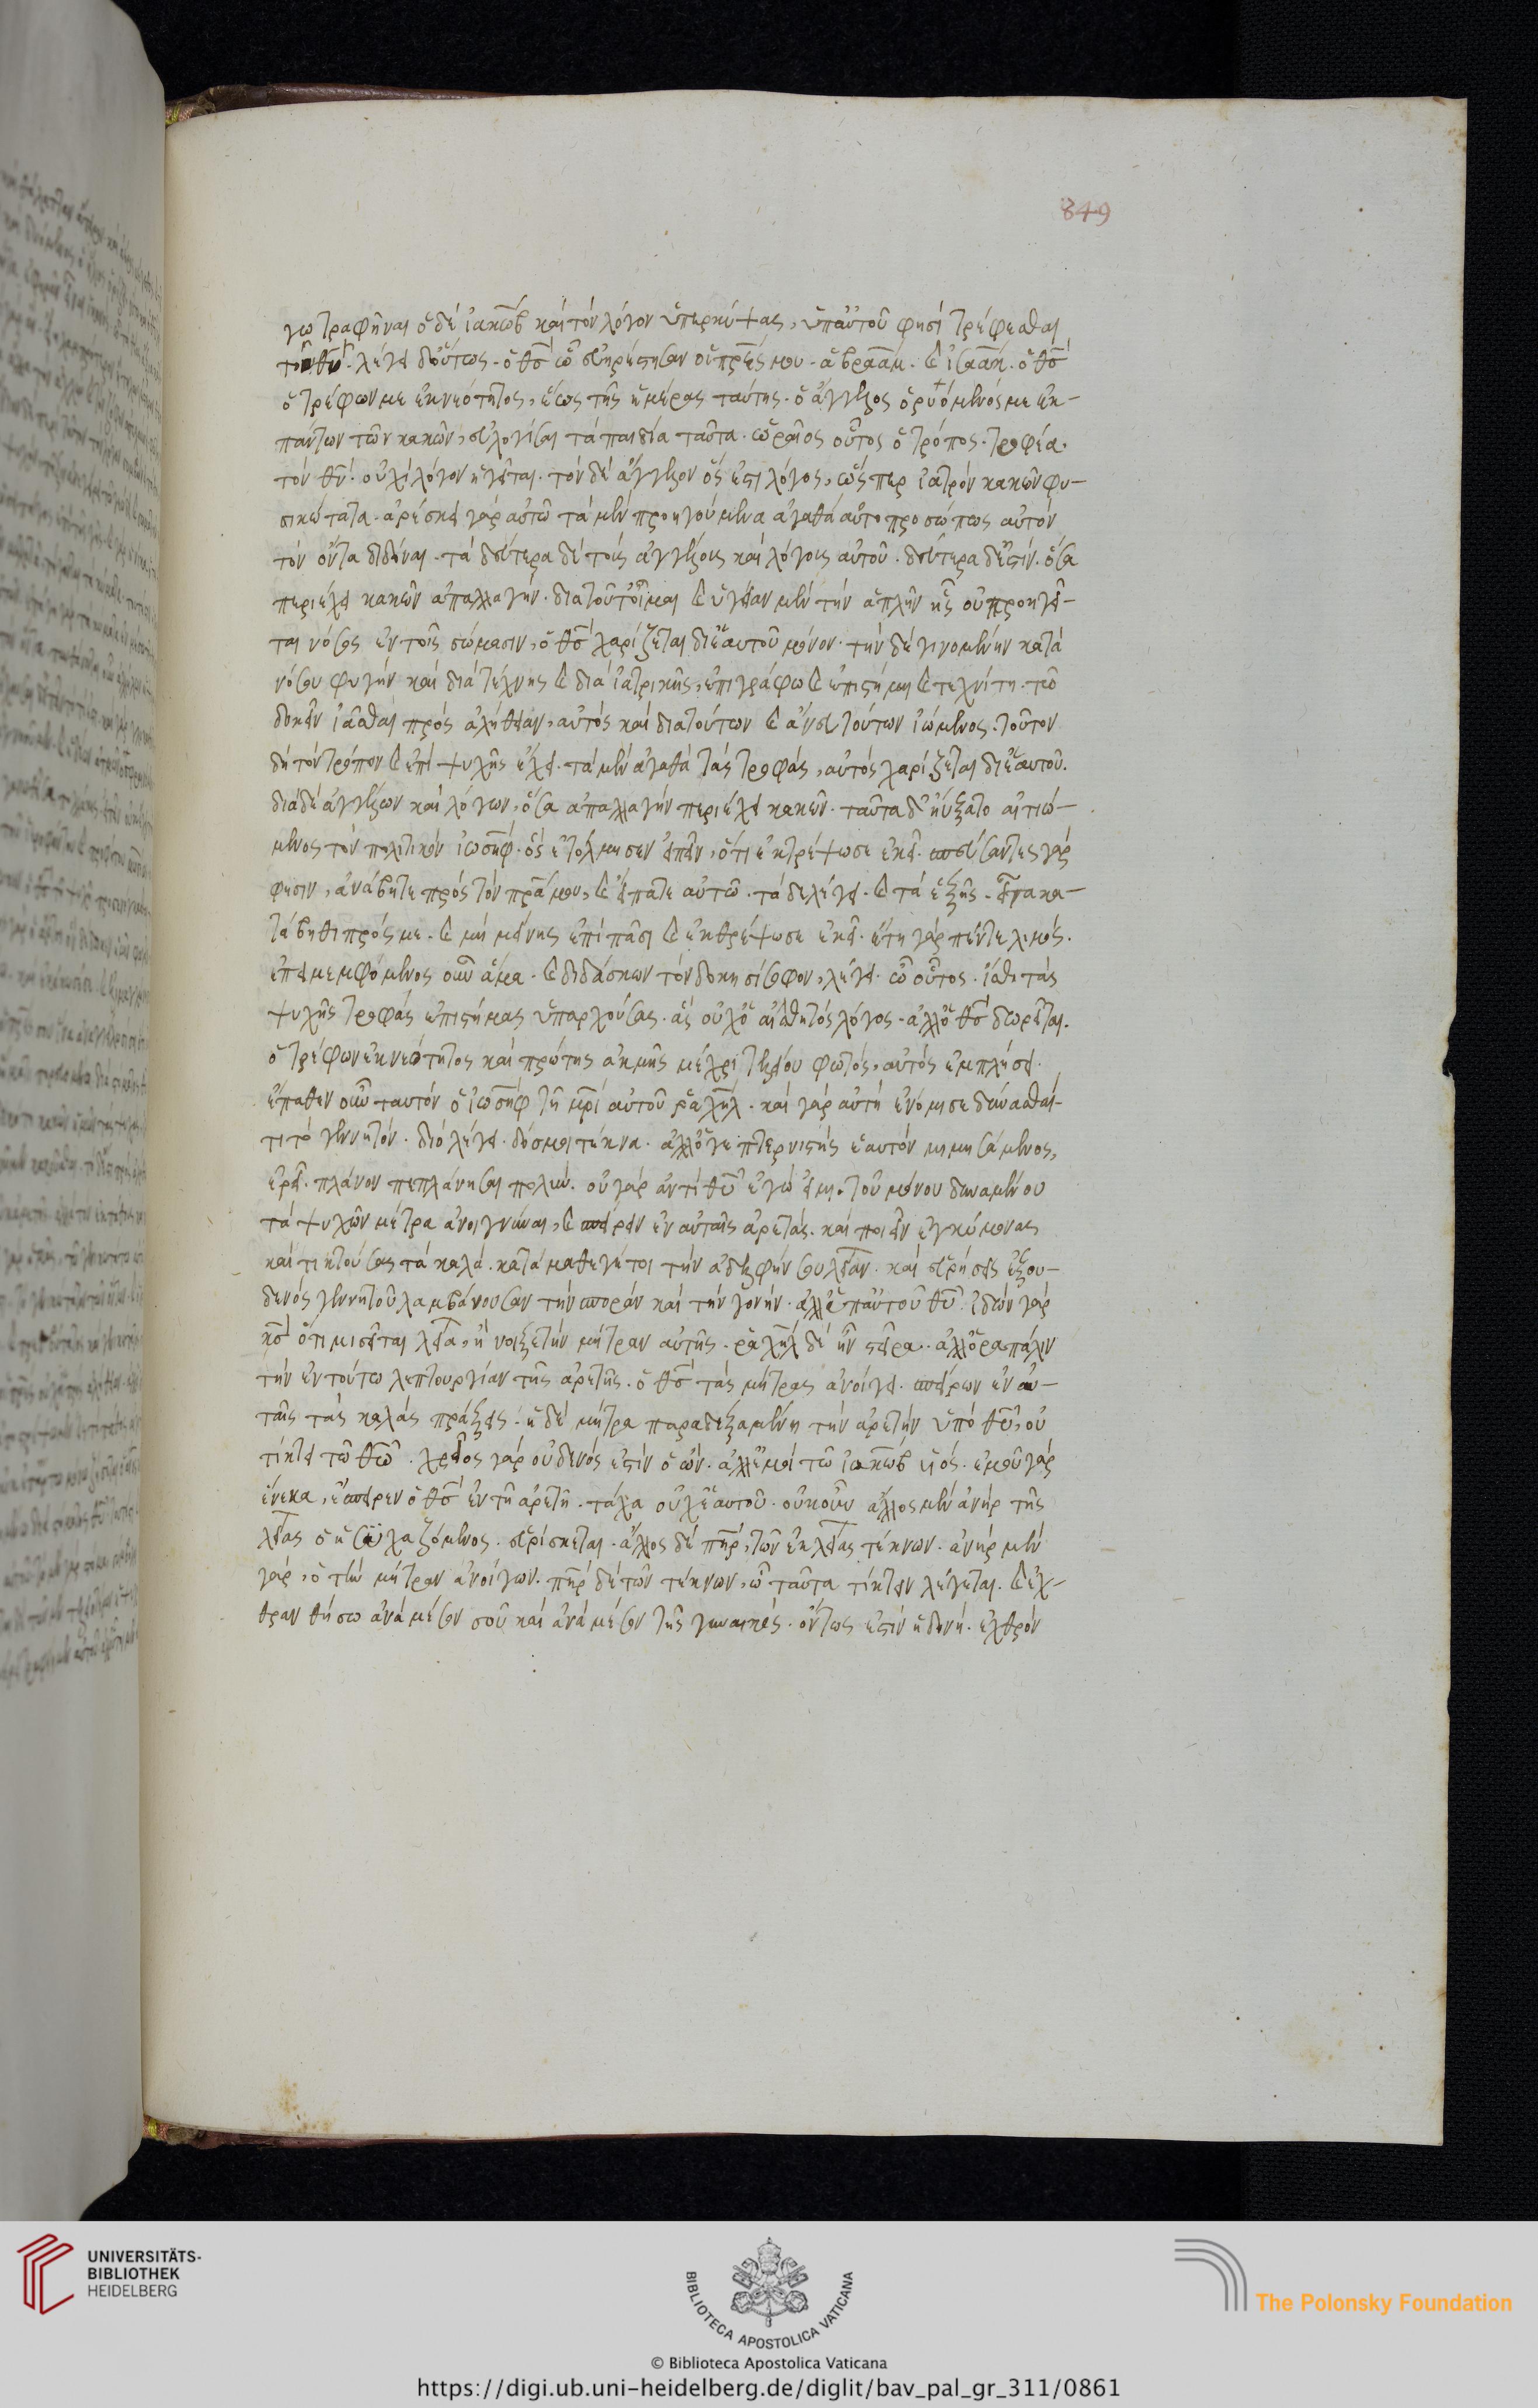 849
γω τραφῆναι ὁ δὲ ἰακὼβ καὶ τὸν λόγον ὑπερκύψας, ὑπ αὐτοῦ φησὶ τρέφεσθαι
τοῦ θυ. λέγει δ οὕτως. ὁ θς ὧ εὐηρέστησαν οἱ πρες μου. ἀβραὰμ. καὶ ἰσαὰκ. ὁ θς
ὁ τρέφων με ἐκ νεότητος, ἕως τῆς ἡμέρας ταύτης. ὁ ἄγγελος ὁ ῥυόμενός με ἐκ-
πάντων τῶν κακῶν, εὐλογῆσαι τὰ παιδία ταῦτα. ὡραῖος οὗτος ὁ τρόπος. τροφέα.
τὸν θν. οὐχὶ λόγον ἡγεῖται. τὸν δὲ ἄγγελον ὅς ἐστι λόγος, ὥσπερ ἰατρὸν κακῶν φυ-
σικώτατα. ἀρέσκει γὰρ αὐτῶ τὰ μὲν προηγούμενα ἀγαθὰ αὐτοπροσώπως αὐτὸν
τὸν ὄντα διδόναι. τὰ δεύτερα δὲ τοῖς ἀγγέλοις καὶ λόγοις αὐτοῦ. δεύτερα δ ἐστὶν. ὅσα
περιέχει κακῶν ἀπαλλαγήν. διατοῦτ οἶμαι καὶ ὑγείαν μὲν τὴν ἁπλῆν ἧς οὐ προηγεῖ-
ται νόσος ἐν τοῖς σώμασιν, ὁ θς χαρίζεται δι ἑαυτοῦ μόνον. τὴν δὲ γινομένην κατὰ
νόσου φυγὴν καὶ διὰ τέχνης καὶ διὰ ἰατρικῆς, ἐπιγράφω καὶ ἐπιστήμη καὶ τεχνίτη. τῶ
δοκεῖν ἰᾶσθαι πρὸς ἀλήθειαν, αὐτὸς καὶ διὰ τούτων καὶ ἄνευ τούτων ἰώμενος. τοῦτον
δὴ τὸν τρόπον καὶ ἐπὶ ψυχῆς ἔχει. τὰ μὲν ἀγαθὰ τὰς τροφάς, αὐτὸς χαρίζεται δι ἑαυτοῦ.
διὰ δὲ ἀγγέλων καὶ λόγων, ὅσα ἀπαλλαγὴν περιέχει κακῶν. ταῦτα δ ηὔξατο αἰτιώ-
μενος τὸν πολιτικὸν ἰωσὴφ. ὃς ἐτόλμησεν εἰπεῖν, ὅτι ἐκτρέψω σε ἐκεῖ. σπεύσαντες γάρ
φησιν, ἀνάβητε πρὸς τὸν πρα μου, καὶ εἴπατε αὐτῶ. τάδε λέγει. καὶ τὰ ἑξῆς. εἶτα κα-
τάβηθι πρός με. καὶ μὴ μείνης ἐπὶ πᾶσι καὶ ἐκθρέψω σε ἐκεῖ. ἔτη γὰρ πέντε λιμός.
ἐπιμεμφόμενος οὖν ἅμα. καὶ διδάσκων τὸν δοκησίσοφον, λέγει. ὦ οὗτος. ἴσθι τὰς
ψυχῆς τροφὰς ἐπιστήμας ὑπαρχούσας. ἃς οὐχ ὁ αἰσθητὸς λόγος. ἀλλ ὁ θς δωρεῖται.
ὁ τρέφων ἐκ νεότητος καὶ πρώτης ἀκμῆς μέχρι τελείου φωτός, αὐτὸς ἐμπλήσει.
ἔπαθεν οὖν ταυτὸν ὁ ἰωσὴφ τῆ μρι αὐτοῦ ῥαχὴλ. καὶ γὰρ αὐτὴ ἐνόμισε δύνασθαί-
τι τὸ γεννητόν. διὸ λέγει. δός μοι τέκνα. ἀλλ ὅγε πτερνιστὴς ἑαυτὸν μιμησάμενος,
ἐρεῖ. πλάνον πεπλάνησαι πολύν. οὐ γὰρ ἀντὶ θυ ἐγώ εἰμι. τοῦ μόνου δυναμένου
τὰ ψυχῶν μέτρα ἀνοιγνύναι, καὶ σπείρειν ἐν αὐταῖς ἀρετάς. καὶ ποιεῖν ἐγκύμονας
καὶ τικτούσας τὰ καλά. κατάμαθε γέτοι τὴν ἀδελφήν σου λείαν. καὶ εὑρήσεις ἐξ οὐ-
δενὸς γεννητοῦ λαμβάνουσαν τὴν σπορὰν καὶ τὴν γονήν. ἀλλ ὑπ αὐτοῦ θυ. ἰδὼν γάρ
κς ὅτι μισεῖται λεία, ἤνοιξε τὴν μήτραν αὐτῆς. ῥαχὴλ δὲ ἦν στεῖρα. ἀλλ ὅρα πάλιν
τὴν ἐν τούτω λεπτουργίαν τῆς ἀρετῆς. ὁ θς τὰς μήτρας ἀνοίγει. σπείρων ἐν αὐ-
ταῖς τὰς καλὰς πράξεις. ἡ δὲ μήτρα παραδεξαμένη τὴν ἀρετὴν ὑπὸ θυ, οὐ
τίκτει τῶ θω. χρεῖος γὰρ οὐδενός ἐστιν ὁ ὤν. ἀλλ ἐμοὶ τῶ ἰακὼβ υἱός. ἐμοῦ γάρ
ἕνεκα, ἔσπειρεν ὁ θς ἐν τῆ ἀρετῆ. τάχα οὐχ ἑαυτοῦ. οὐκοῦν ἄλλος μὲν ἀνὴρ τῆς
λείας ὁ ἡσυχαζόμενος. εὑρίσκεται. ἄλλος δὲ πηρ, τῶν ἐκ λείας τέκνων. ἀνὴρ μὲν
γάρ, ὁ τὴν μήτραν ἀνοίγων. πηρ δὲ τῶν τέκνων, ὧ ταῦτα τίκτειν λέγεται. καὶ ἔχ-
θραν θήσω ἀνὰ μέσον σοῦ καὶ ἀνὰ μέσον τῆς γυναικός. ὄντως ἐστὶν ἡδονή. ἐχθρόν
UNIVERSITÄTS-
BIBLIOTHEK
HEIDELBERG
BIBLIOTECA APOSTOLICA VATICANA
The Polonsky Foundation
© Biblioteca Apostolica Vaticana
https://digi.ub.uni-heidelberg.de/diglit/bav_pal_gr_311/0861